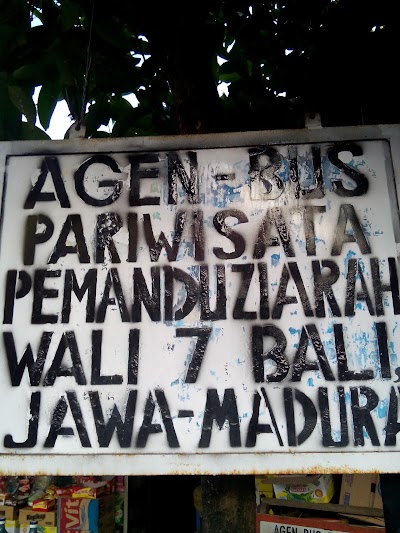 AGEN-BUS
PARIWISATA
PEMANDUZIARAH
WALI 7 BALI,
JAWA-MADURA
AGEN BUS